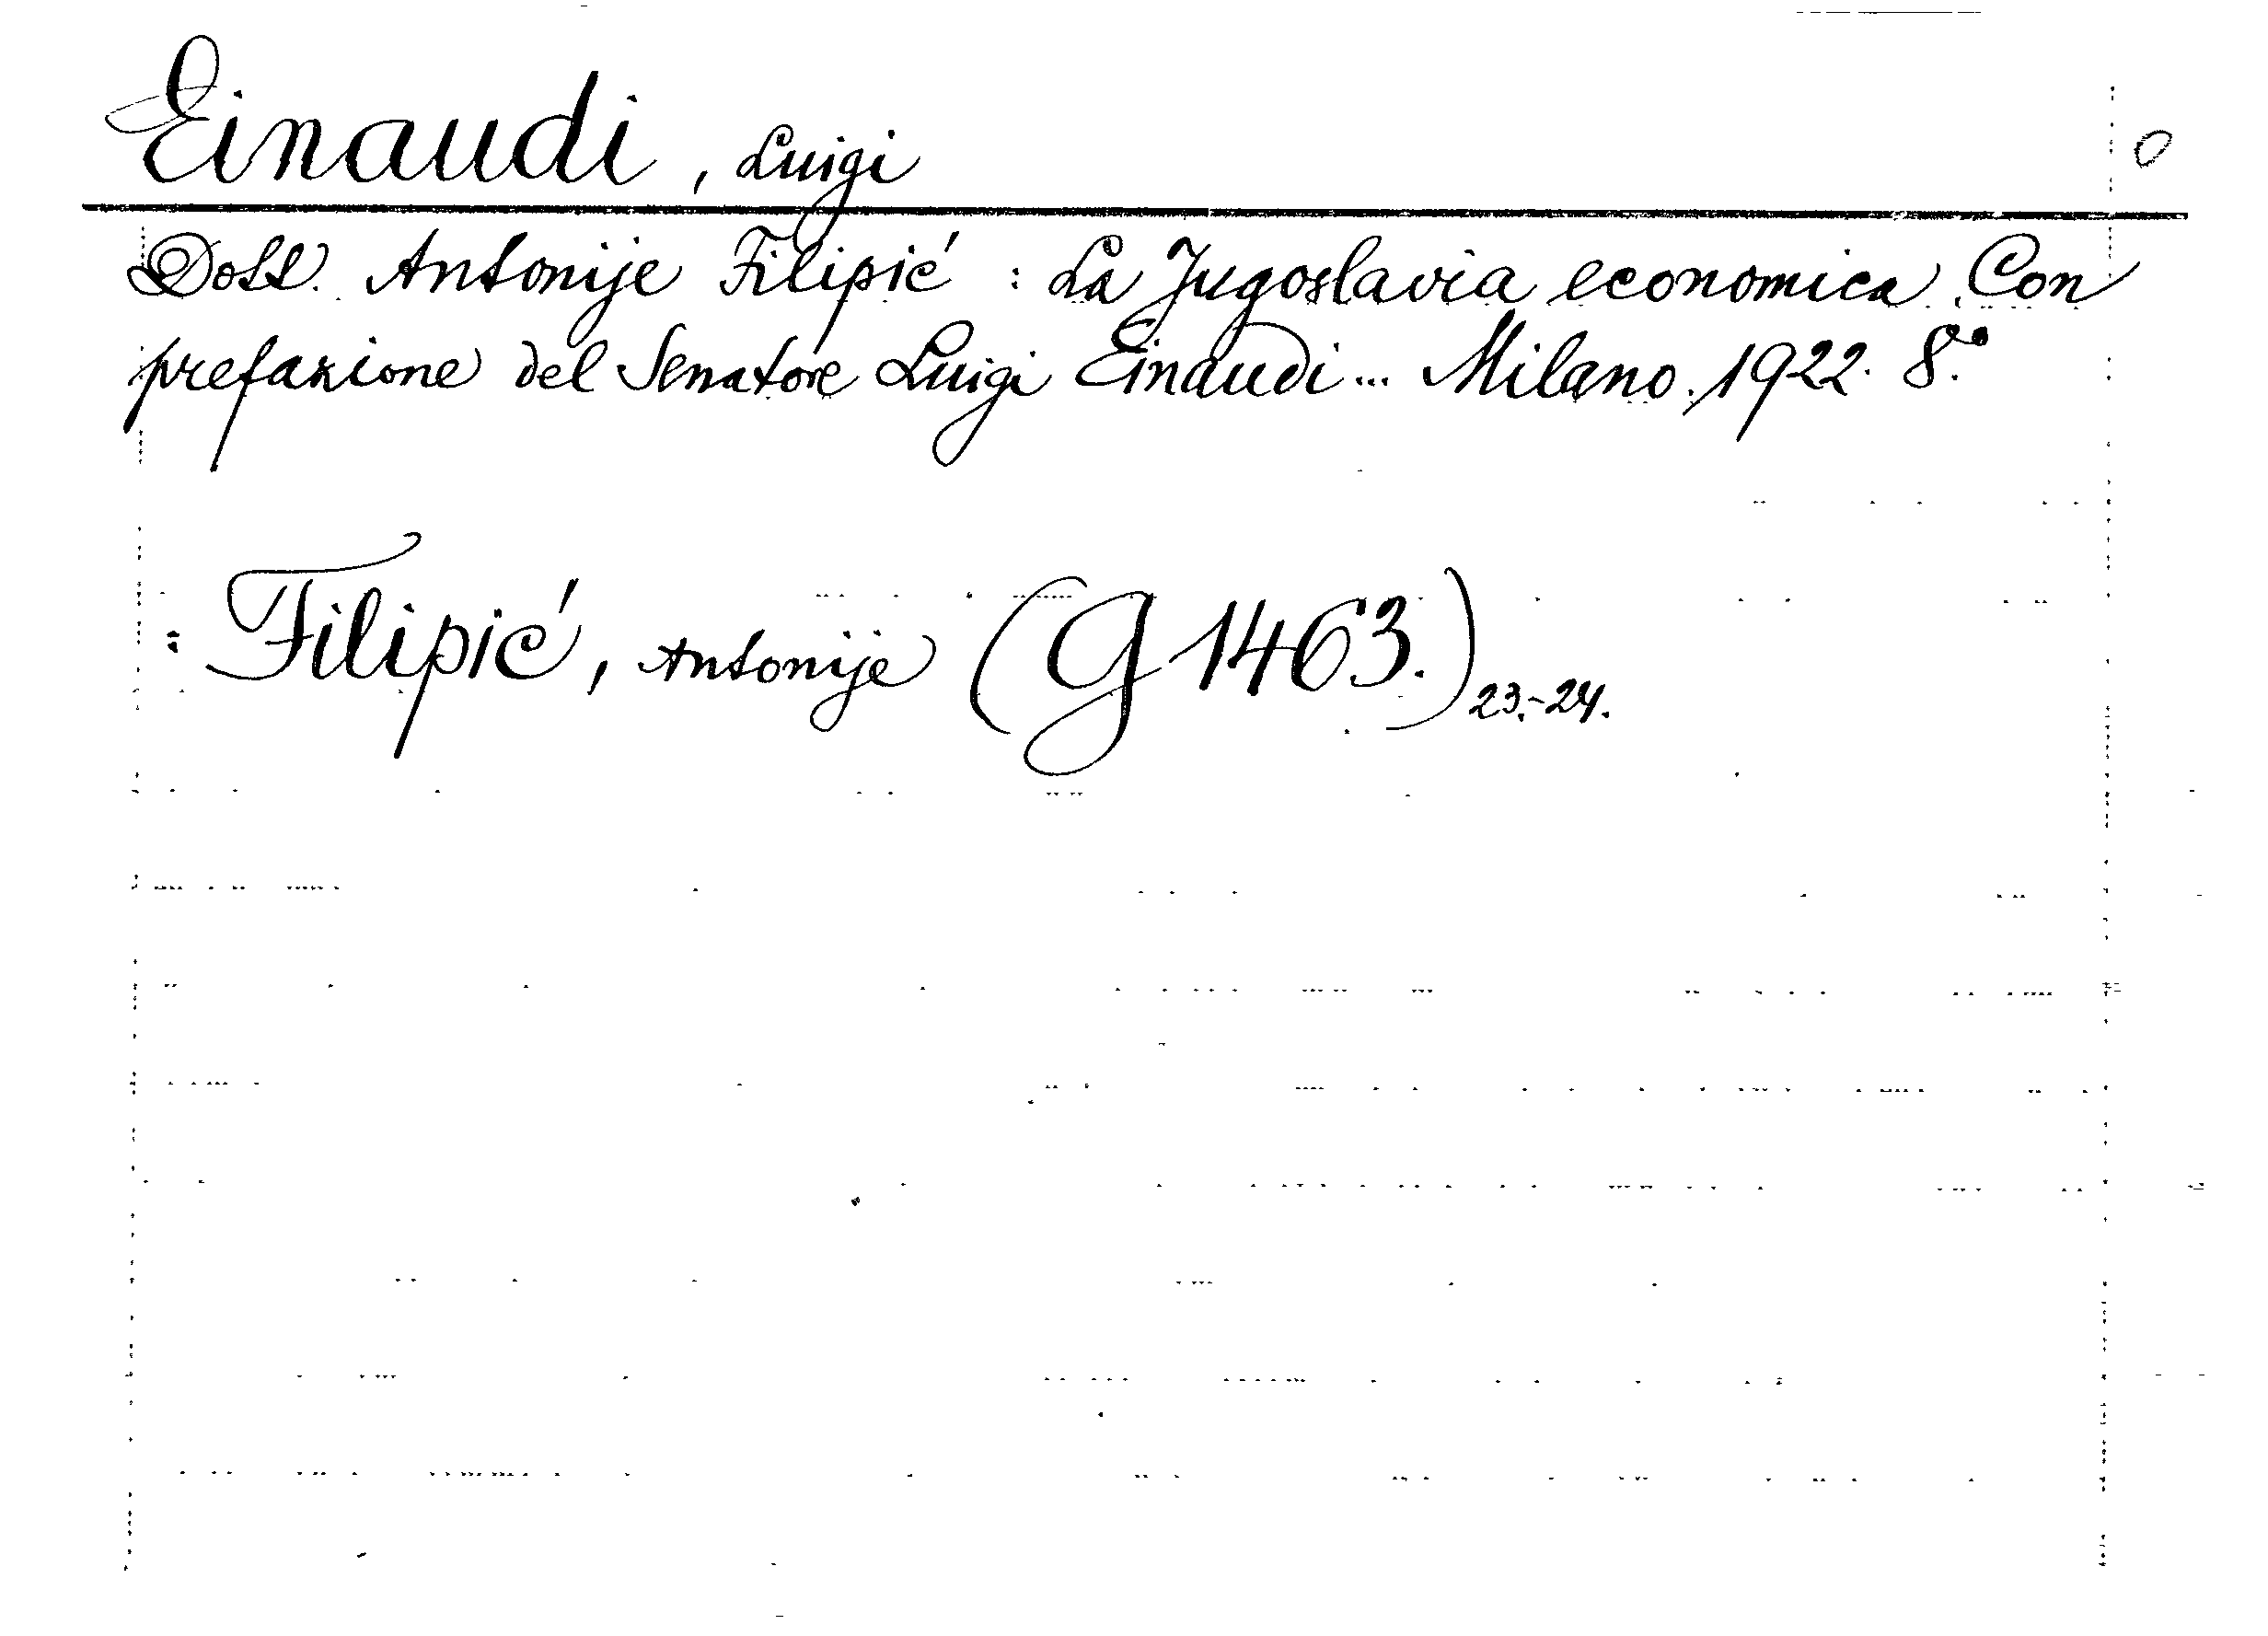 Einaudi, Luigi
Dott. Antonije Filipić : La Jugoslavia economica. Con
prefazione del Senatore Luigi Einaudi... Milano. 1922. 8.°
: Filipić, Antonije (G 1463.) 23.-24.